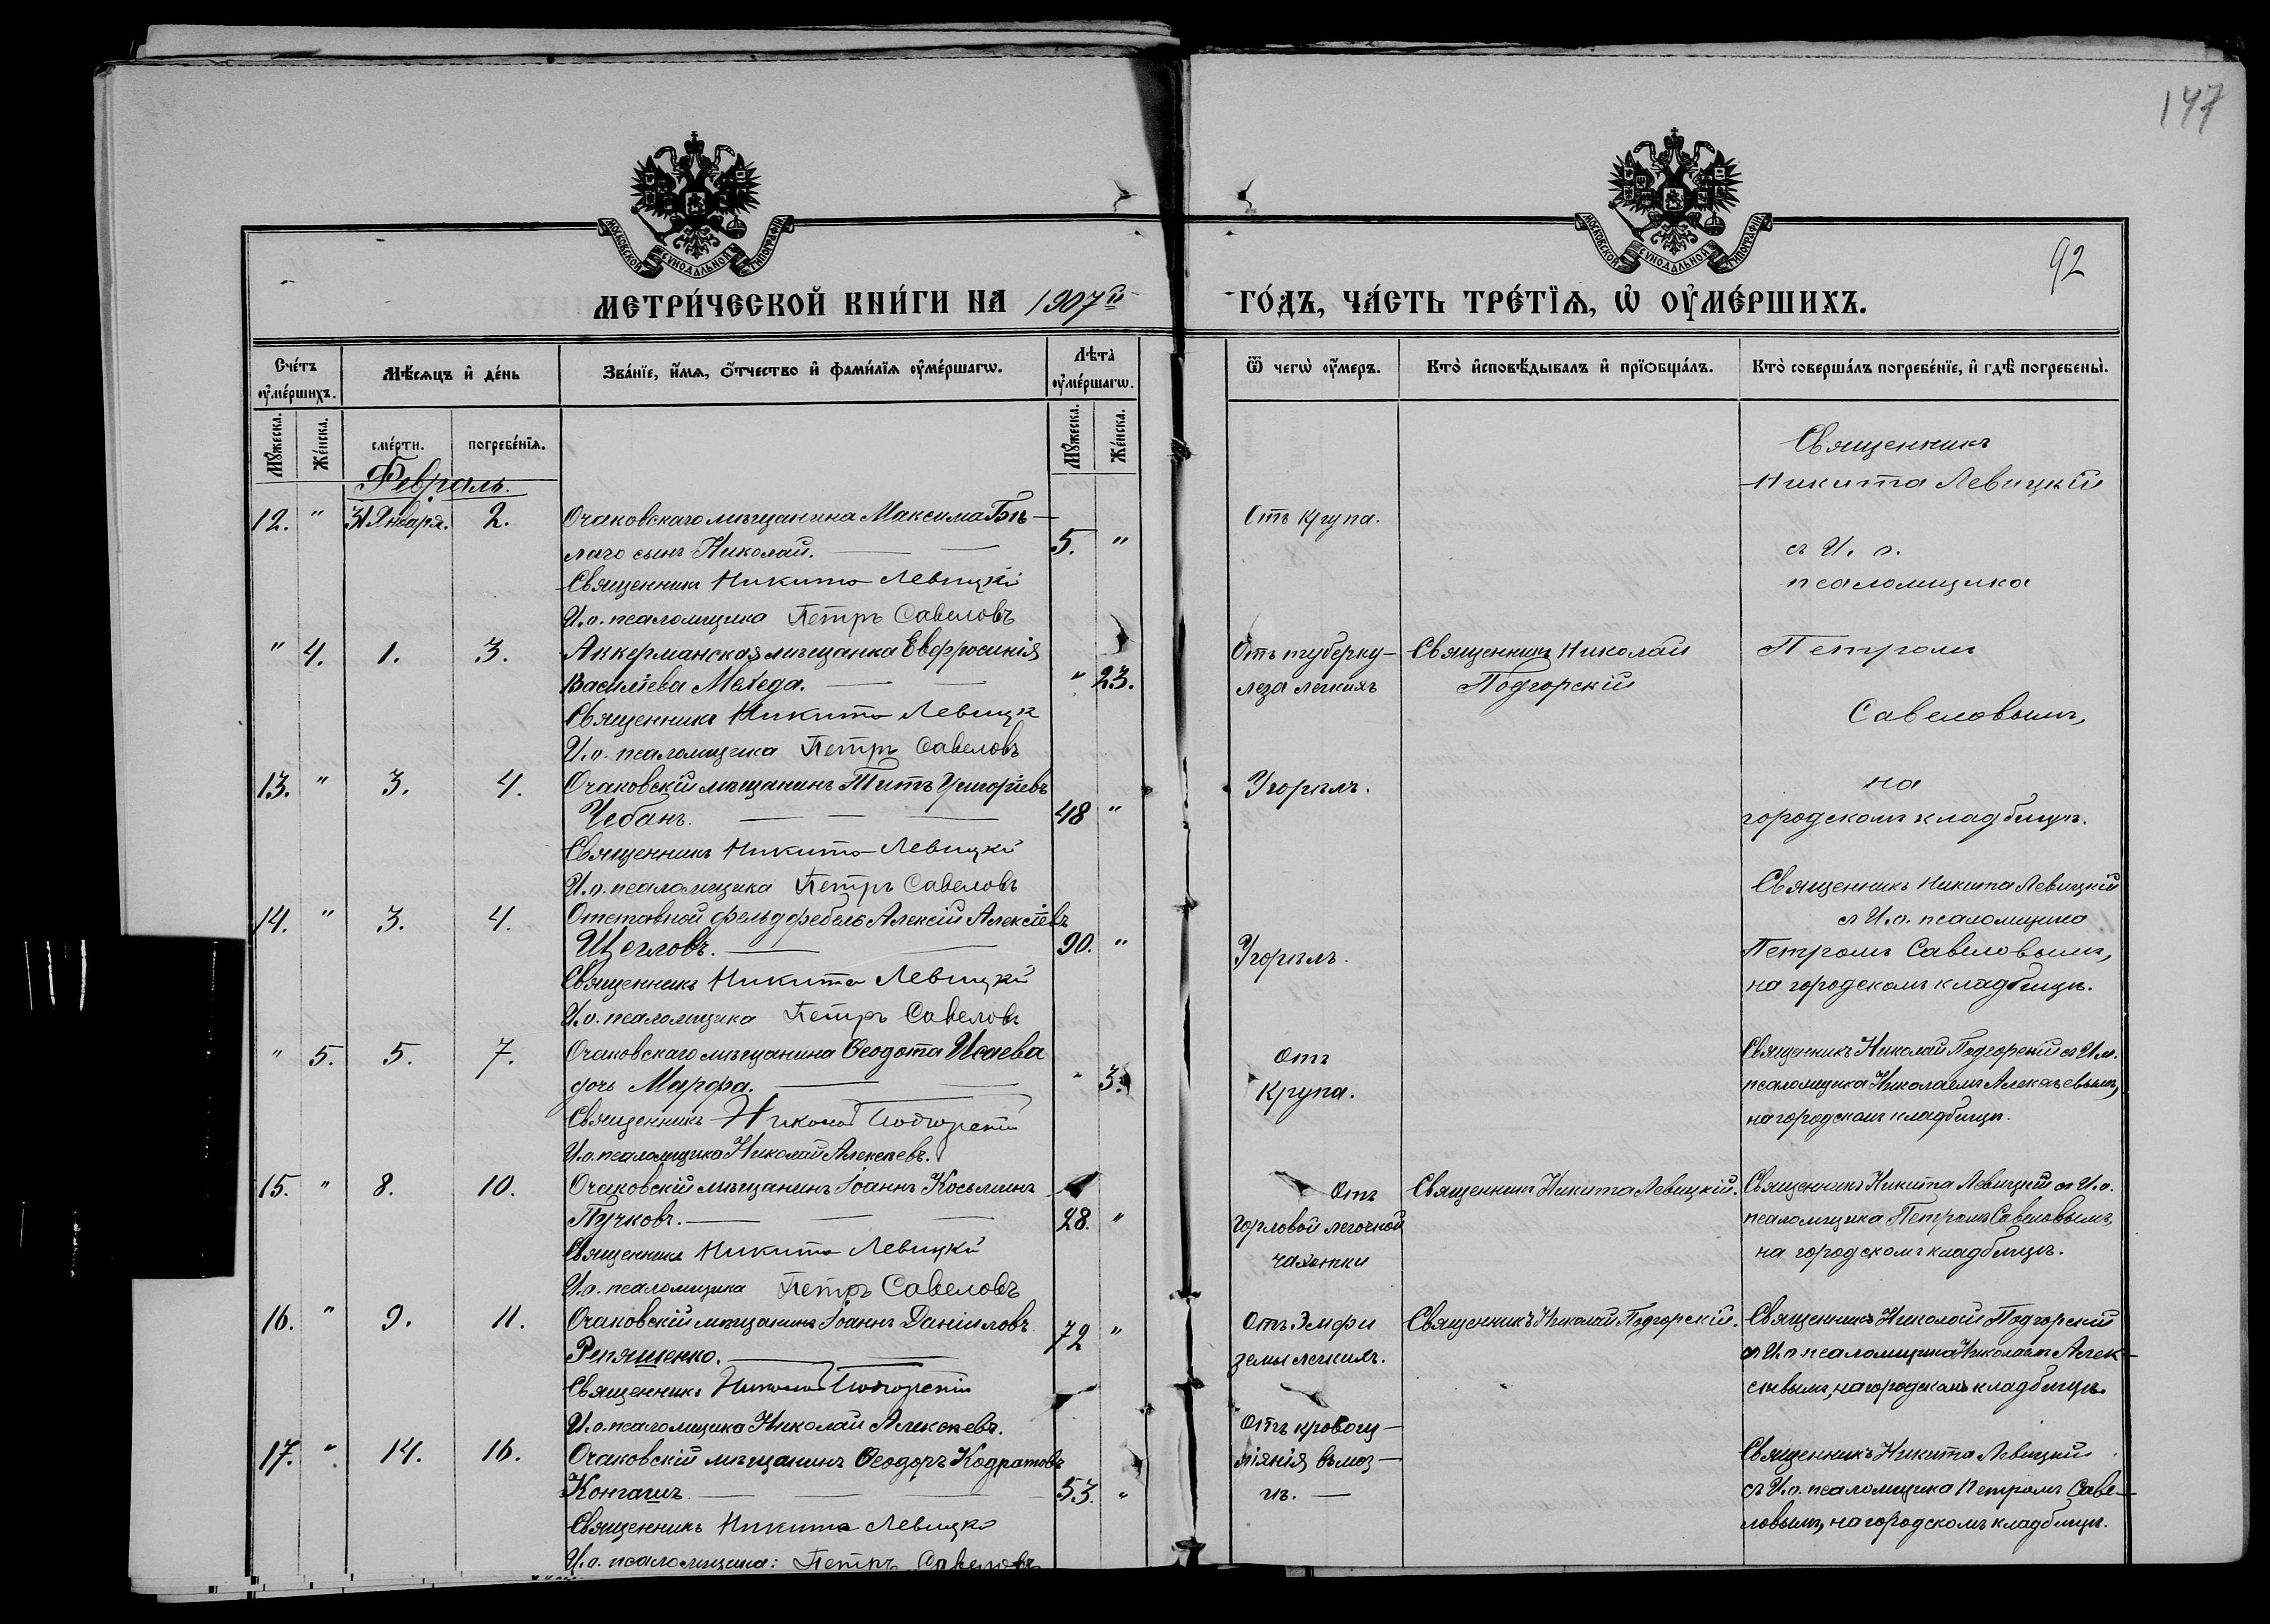 147
92
МОСКОВСКОЙ СѴНОДАЛЬНОЙ ТИПОГРАФІИ
МОСКОВСКОЙ СѴНОДАЛЬНОЙ ТИПОГРАФІИ
МЕТРИ́ЧЕСКОЙ КНИ́ГИ НА 1907й ГО́ДЪ, ЧА́СТЬ ТРЕ́ТЇѦ, Ѡ҆ ОУ҆МЕ́РШИХЪ.
Счетъ оумершихъ.
Мѣсяцъ и день
Званіе, имя, отчество и фамилія оумершагѡ.
Лѣта оумершагѡ.
Ѿ чегѡ оумеръ.
Кто исповѣдывалъ и пріобщалъ.
Кто совершалъ погребеніе, и гдѣ погребены.
Мужеска.
Женска.
смерти.
погребенія.
Мужеска.
Женска.
Февраль.
12. " 31 Января. 2.
Очаковскаго мѣщанина Максима Бѣ-
лаго сынъ Николай.
5. "
Отъ крупа.
Священникъ Никита Левицкій
И.о. псаломщика Петръ Савеловъ
Священникъ
Никита Левицкій
съ И. о.
псаломщика
Петромъ
Савеловымъ,
на
городскомъ кладбищѣ.
" 4. 1. 3.
Аккерманская мѣщанка Евфросинія
Василіева Мегеда.
" 23.
Отъ туберку-
леза легкихъ
Священникъ Николай
Подгорскій
Священникъ Никита Левицк
И.о. псаломщика Петръ Савеловъ
13. " 3. 4.
Очаковскій мѣщанинъ Титъ Григоріевъ
Чебанъ.
48 "
Угорѣлъ.
Священникъ Никита Левицкій
И.о. псаломщика Петръ Савеловъ
14. " 3. 4.
Отставной фельдфебель Алексій Алексіевъ
Щегловъ.
90. "
Угорѣлъ.
Священникъ Никита Левицкій
И.о. псаломщика Петръ Савеловъ
Священникъ Никита Левицкій
съ И.о. псаломщика
Петромъ Савеловымъ,
на городскомъ кладбищѣ.
" 5. 5. 7.
Очаковскаго мѣщанина Ѳеодота Исаева
дочь Марфа.
" 3.
Отъ
крупа.
Священникъ Николай Подгорскій
И.о. псаломщика Николай Алексѣевъ.
Священникъ Николай Подгорскій съ И.о.
псаломщика Николаемъ Алексѣевымъ,
на городскомъ кладбищѣ.
15. " 8. 10.
Очаковскій мѣщанинъ Іоаннъ Косьминъ
Пучковъ.
28. "
Отъ
горловой легочной
чахотки
Священникъ Никита Левицкій.
Священникъ Никита Левицкій
И.о. псаломщика Петръ Савеловъ
Священникъ Никита Левицкій съ И.о.
псаломщика Петромъ Савеловымъ,
на городскомъ кладбищѣ.
16. " 9. 11.
Очаковскій мѣщанинъ Іоаннъ Даніиловъ
Репяшенко.
72 "
Отъ эмфи
земы легкихъ.
Священникъ Николай Подгорскій.
Священникъ Николай Подгорскій
И.о. псаломщика Николай Алексѣевъ.
Священникъ Николай Подгорскій
съ И.о псаломщика Николаемъ Алек-
сѣевымъ, на городскомъ кладбищѣ.
17. " 14. 16.
Очаковскій мѣщанинъ Ѳеодоръ Кодратовъ
Конгашъ
53. "
Отъ кровоиз-
ліянія въ моз-
гъ.
Священникъ Никита Левицкій
И.о. псаломщика: Петръ Савеловъ
Священникъ Никита Левицкій
съ И.о. псаломщика Петромъ Саве-
ловымъ, на городскомъ кладбищѣ.